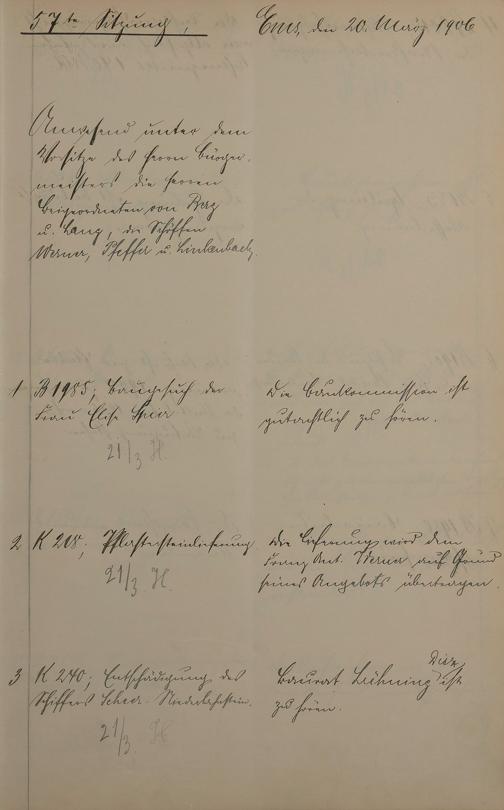 57te Sitzung,
Ems, den 20. März 1906
Anwesend unter dem
Vorsitze des Herrn Bürger-
meisters die Herren
Beigeordneten von Berg
u. Lang, die Schöffen
Werner, Pfeffer u. Linkenbach.
1 B 1985; Baugesuch der
Frau Elise
21/3 H.
Die Baukommission ist
gutachtlich zu hören.
2 K 218; Pflastersteinlieferung
21/3. H.
Die Lieferung wird dem
Franz Ant. Werner auf Grund
seines Angebots übertragen.
3 K 240; Entschädigung des
Schiffers Niederlahnstein.
21/3. H
Diez
Baurat Lühning ist
zu hören.